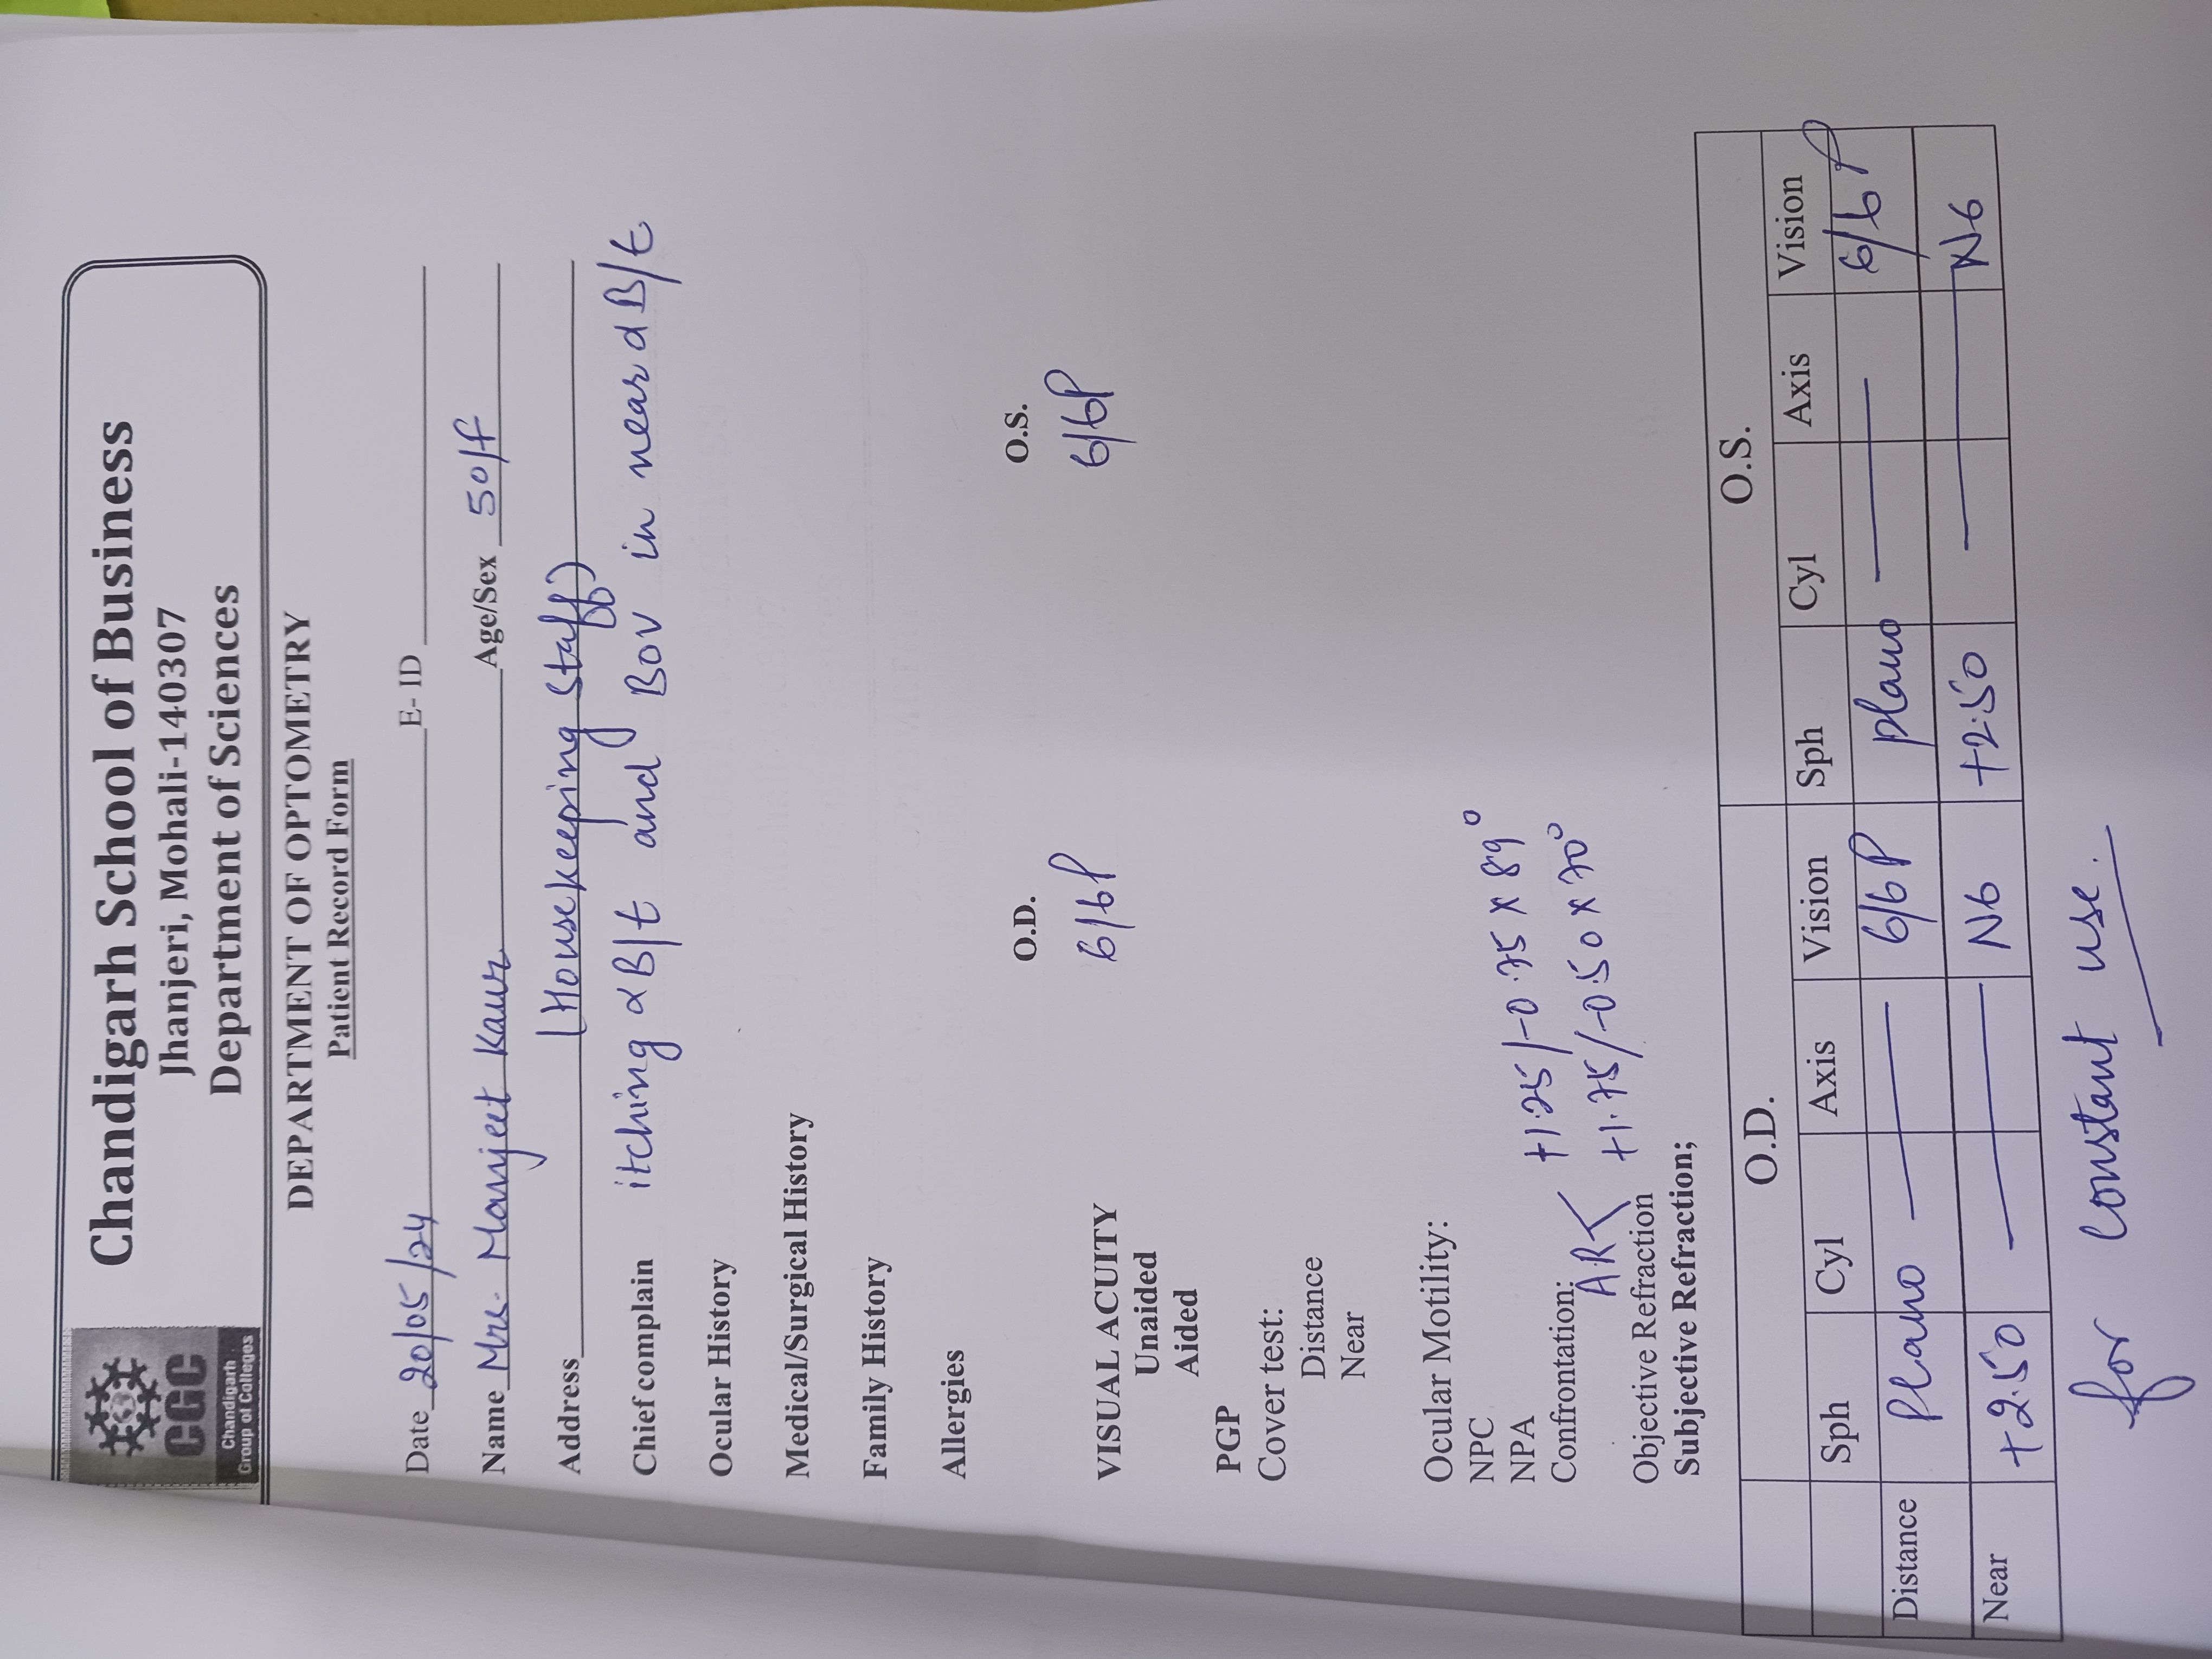 CGC
Chandigarh
Group of Colleges
Chandigarh School of Business
Jhanjeri, Mohali-140307
Department of Sciences
DEPARTMENT OF OPTOMETRY
Patient Record Form
Date 20/05/24 E- ID
Name Mrs. Manjeet Kaur Age/Sex 50/f
Address (Housekeeping Staff)
Chief complain itching α B/E and BOV in near α B/E
Ocular History
Medical/Surgical History
Family History
Allergies
O.D. O.S.
VISUAL ACUITY 6/6P 6/6P
Unaided
Aided
PGP
Cover test:
Distance
Near
Ocular Motility:
NPC
NPA +1.25/-0.75 X 89°
Confrontation:
AR< +1.75/-0.50 X 70°
Objective Refraction
Subjective Refraction;
O.D. O.S.
Sph Cyl Axis Vision Sph Cyl Axis Vision
Distance Plano — 6/6P plano — 6/6P
Near +2.50 — N6 +2.50 — N6
for constant use.